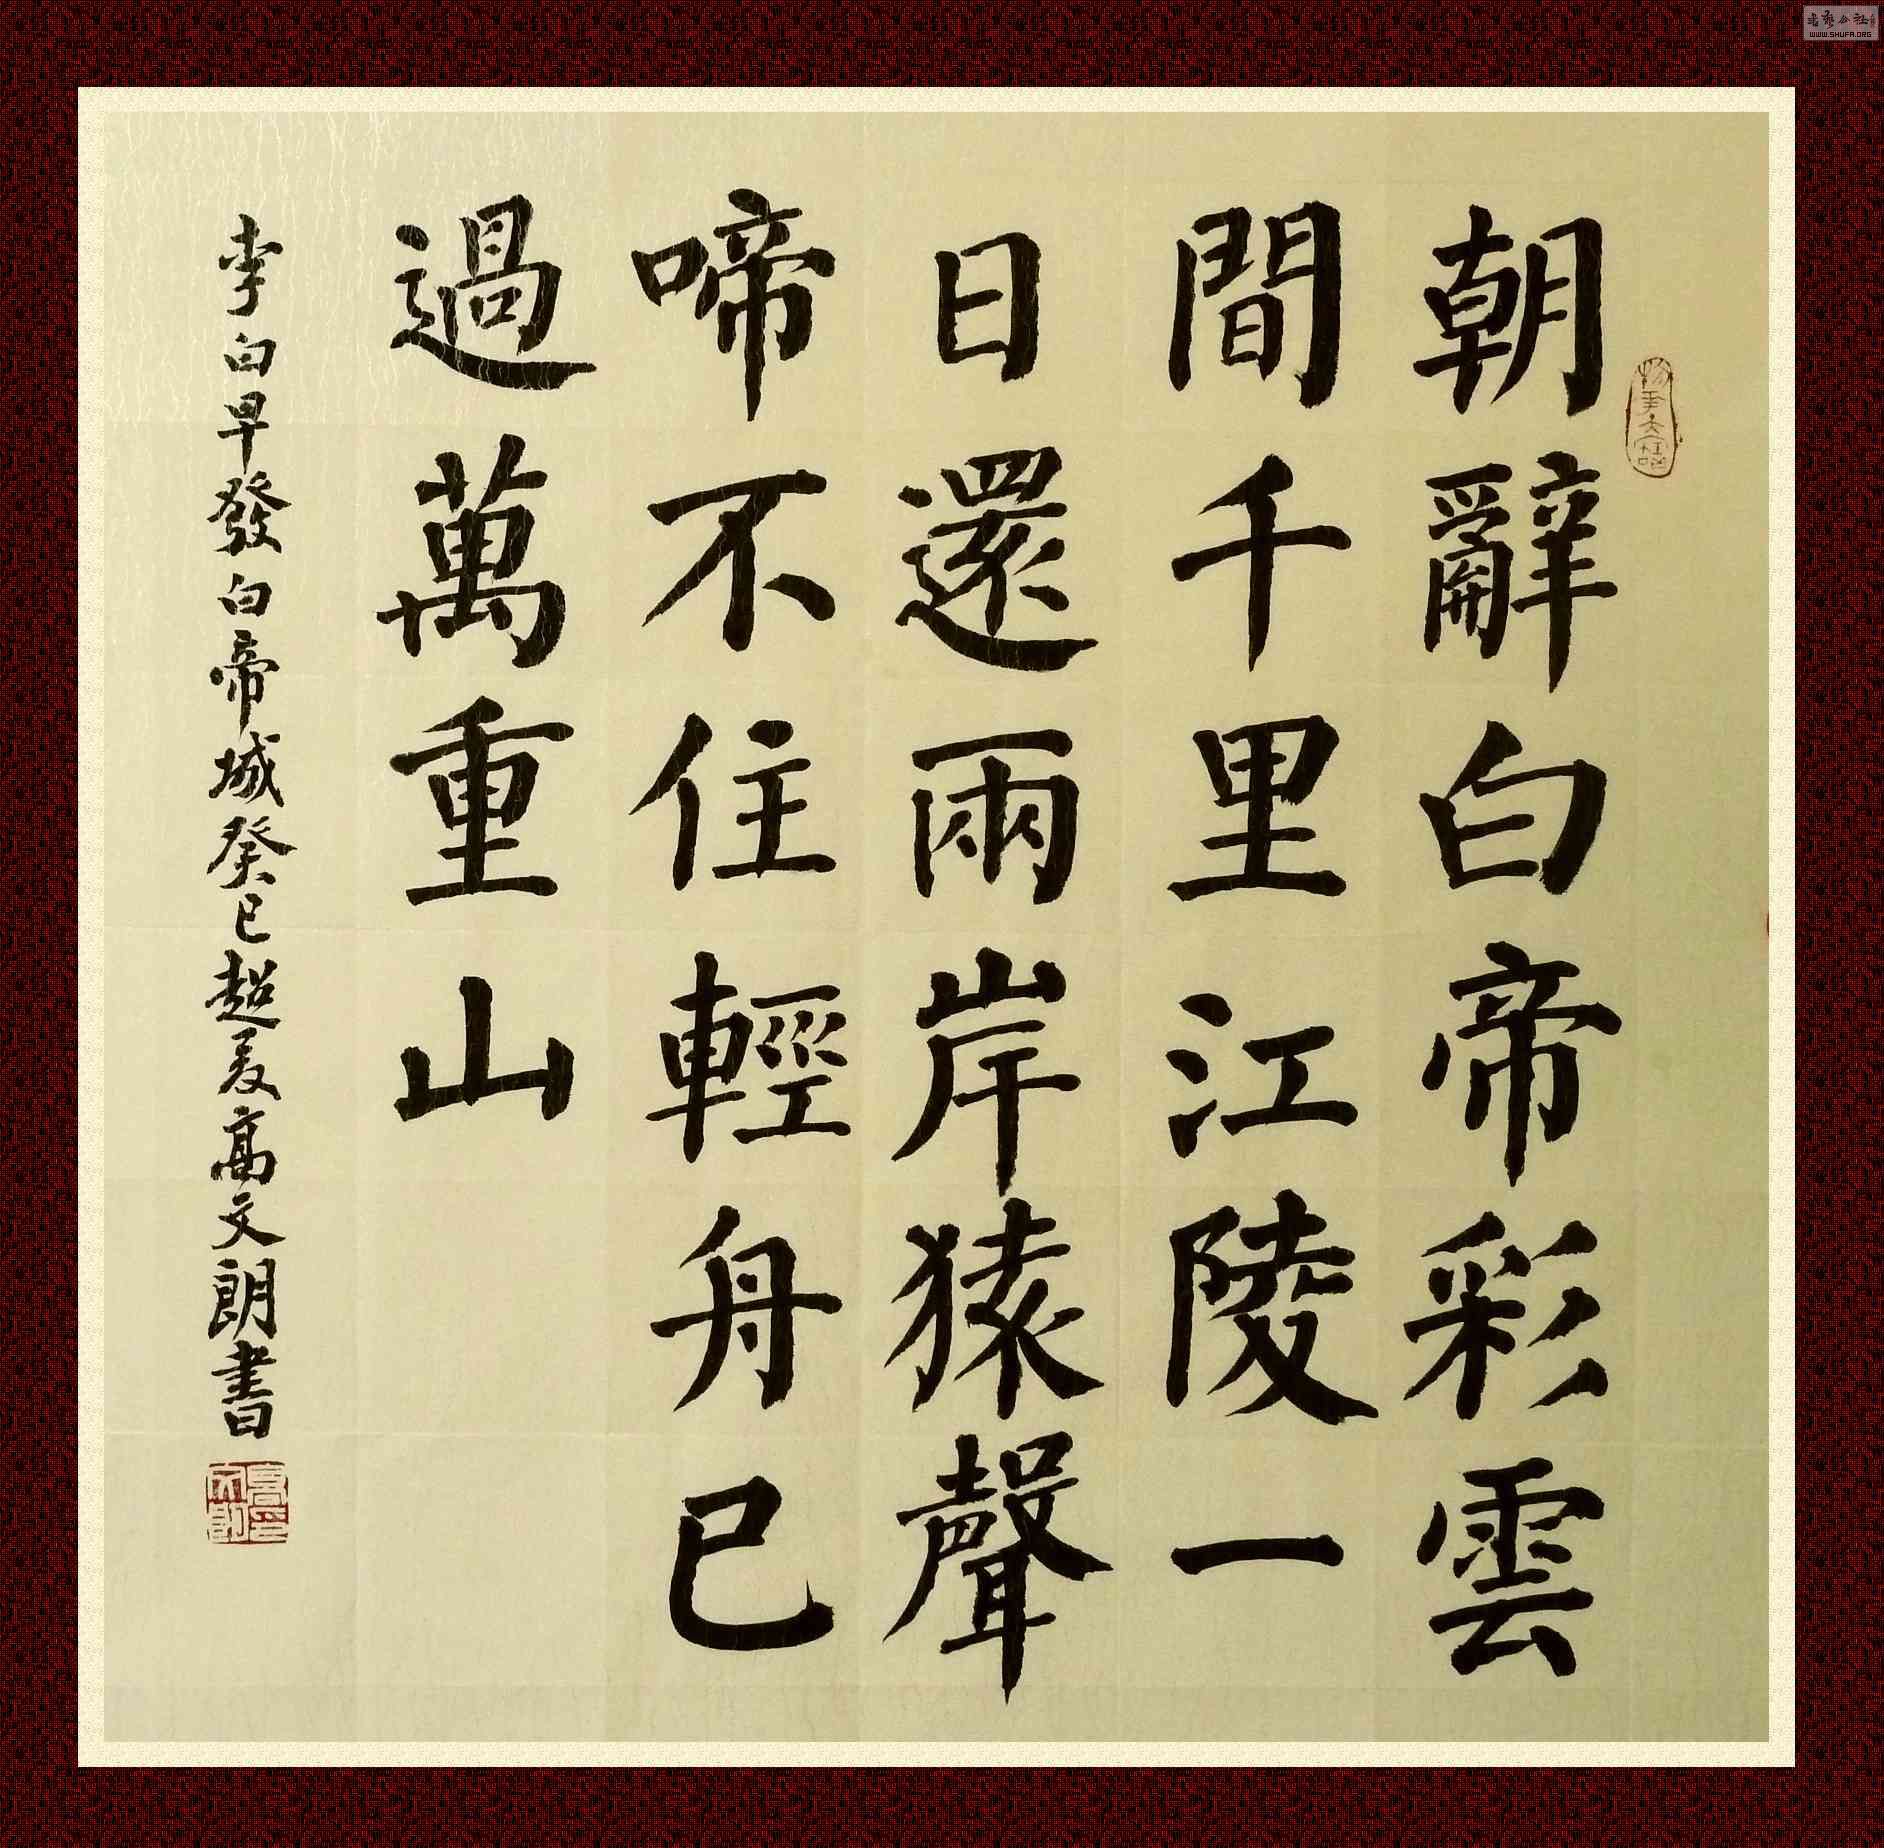 朝辭白帝彩雲
間千里江陵一
日還兩岸猿聲
啼不住輕舟已
過萬重山
李白早發白帝城癸巳超夏高文朗書
WWW.SHUFA.ORG